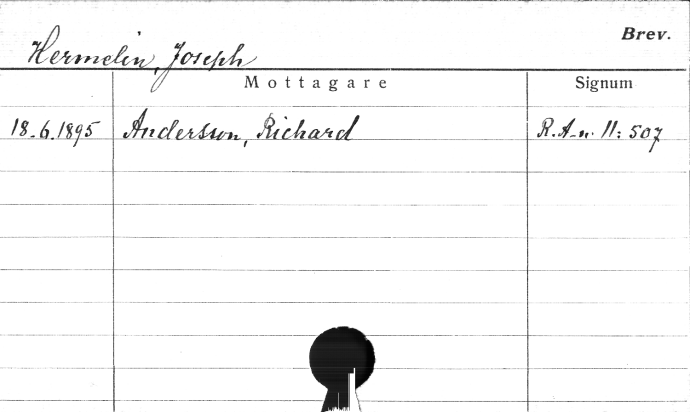 Brev.
Hermelin, Joseph
Mottagare Signum
18.6.1895 Andersson, Richard R.A-n. II: 507